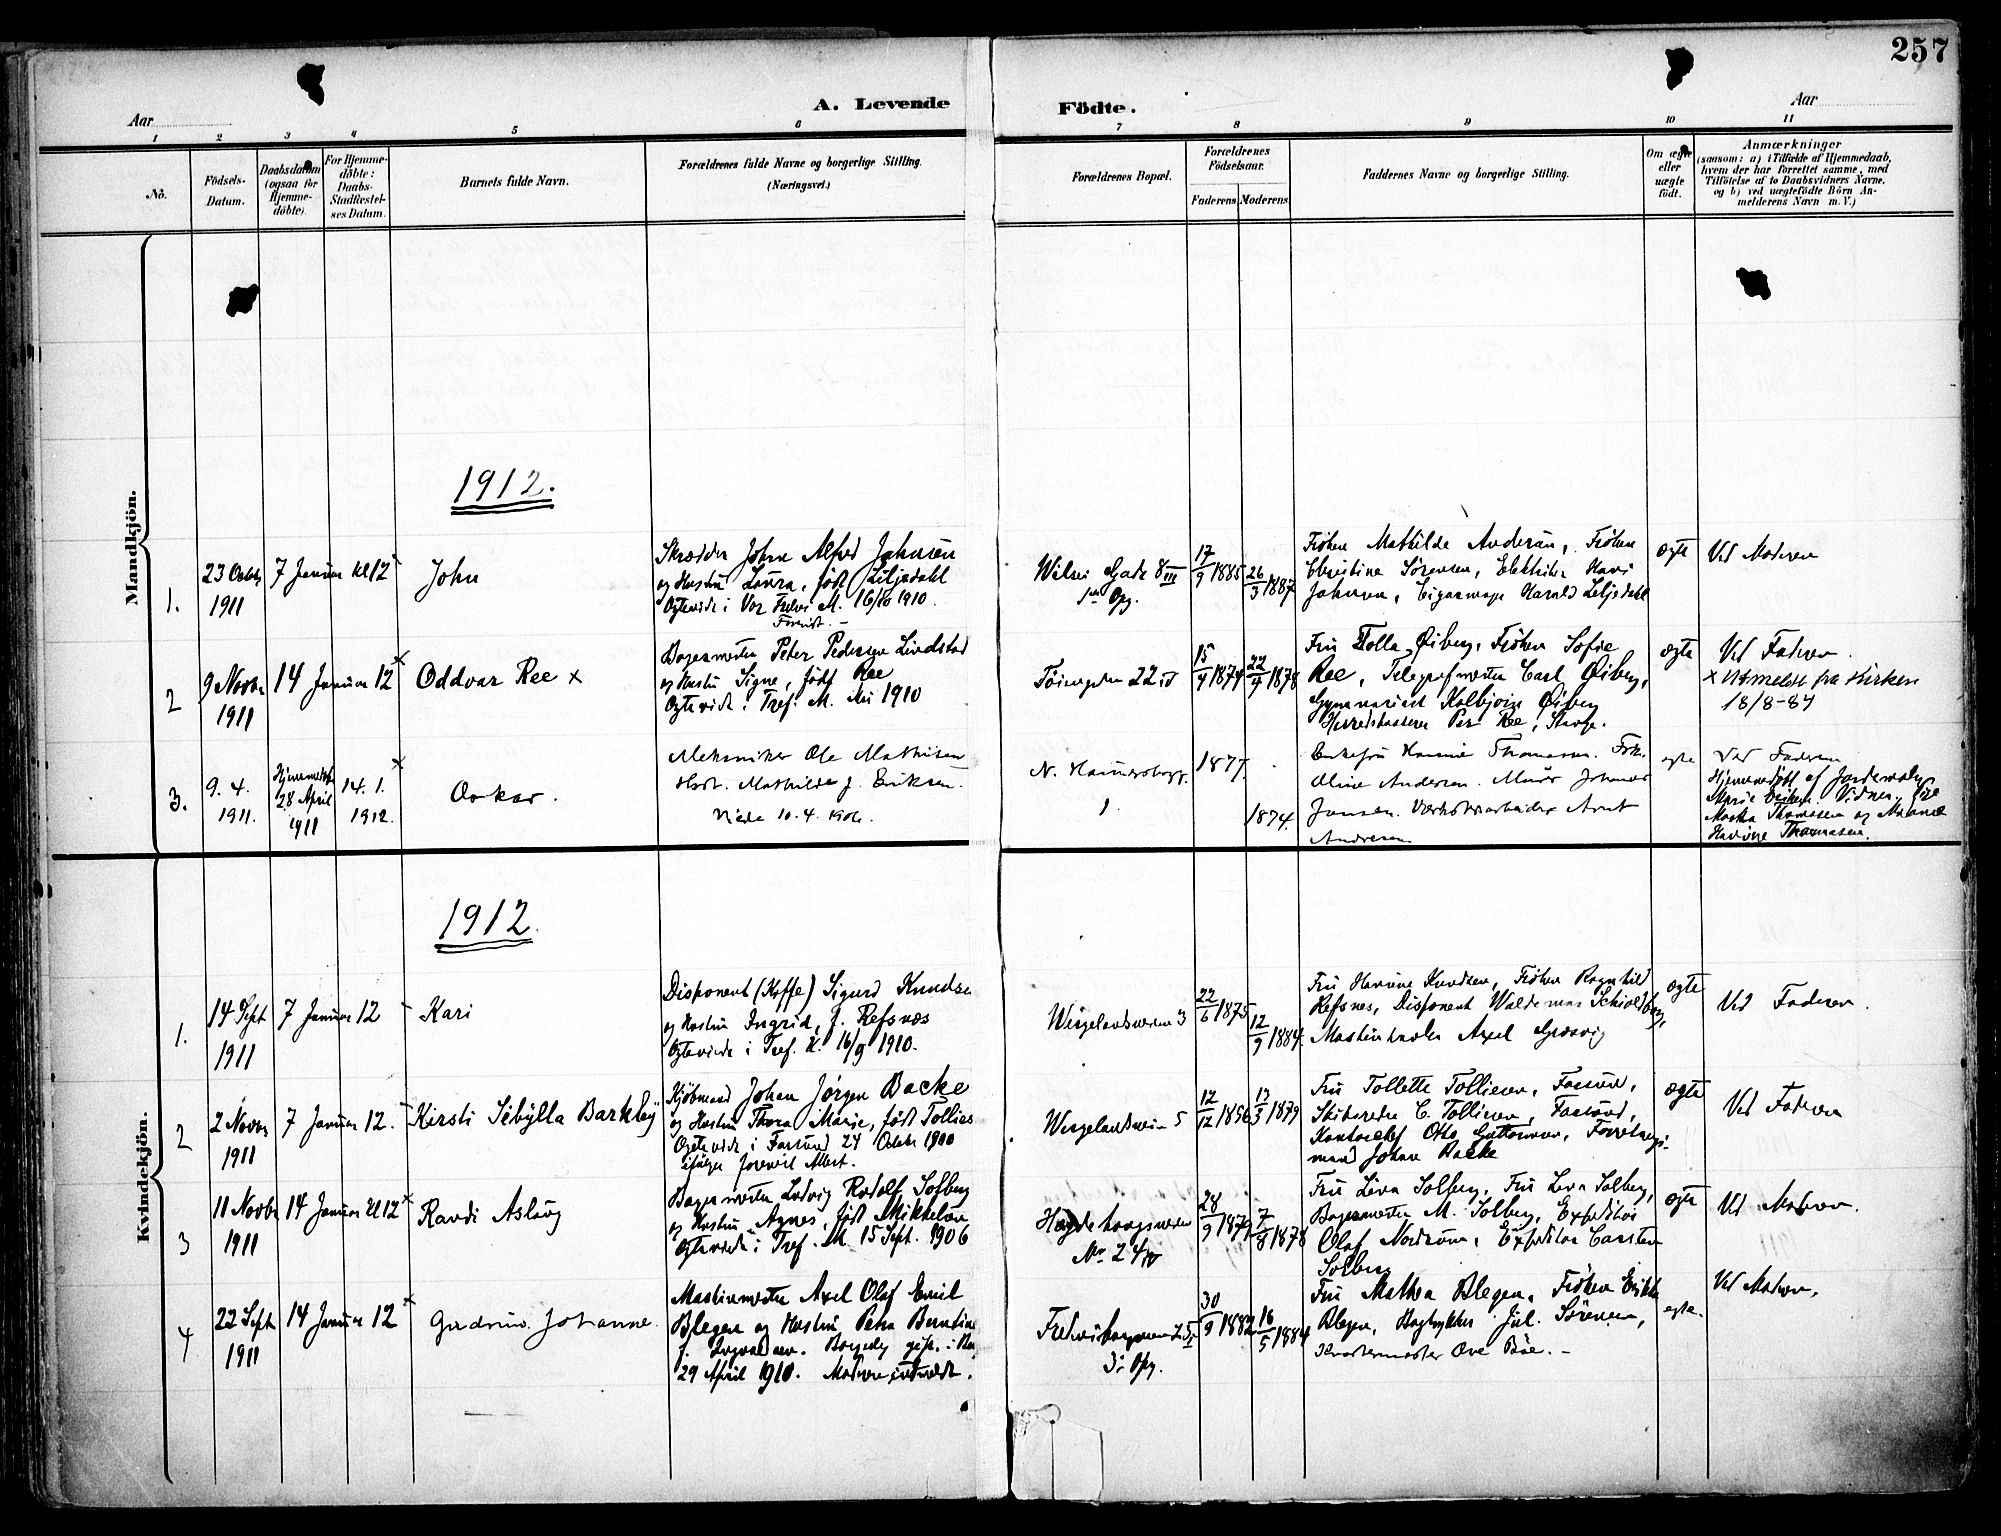 257
A. Levende Födte.
Aar
Aar
1 2 3 4 5 6 7 8 9 10 11
No.
Födsels-Datum.
Daabsdatum (ogsaa for Hjemme-döbte).
For Hjemme-döbte: Daabs-Stadfæstel-ses Datum.
Barnets fulde Navn.
Forældrenes fulde Navne og borgerlige Stilling.
(Næringsvei.)
Forældrenes Bopæl.
Forældrenes Födselsaar.
Faderens Moderens
Faddernes Navne og borgerlige Stilling.
Om ægte eller uægte födt.
Anmærkninger
(saasom: a) i Tilfælde af Hjemmedaab,
hvem der har forrettet samme, med
Tilföielse af to Daabsvidners Navne,
og b) ved uægtefödte Börn An-
melderens Navn m. V.)
Mandkjön.
1912.
1.
23 Octob
1911
7 Januar kl 12
John
Skrædder John Alfred Johnsen
og Hustru Laura, født Liljedahl
Ægteviede i Vor Frelsers M. 16/10 1910.
17/9 1885
26/3 1887
Frøken Mathilde Andersen, Frøken
Christine Sørensen, Elektriker Hans
Johnsen, Cigarmager Harald Liljedahl
ægte
Ved Moderen
2
9 Novbr
1911
14 Januar 12 x
Oddvar Ree x
Bagermester Peter Pedersen Lindstad
og Hustru Signe, født Ree
Ægteviede i Tref. M. Mai 1910
15/4 1874
22/9 1878
Fru Tolla Øiberg, Frøken Sofie
Ree, Telegrafmester Carl Øiberg,
Gymnasiast Kolbjørn Øiberg
Herredskasserer Per Ree, Stange.
ægte
Ved Faderen.
x Utmeldt fra Kirken
18/8-84
3.
9. 4.
1911.
Hjemmedøbt
28 April
1911
14. 1. x
1912.
Oskar.
Mekaniker Ole Mathisen
Hust. Mathilde f. Eriksen.
Viede 10. 4. 1906.
N. Hammersborgg.
1.
1877
1874.
Enkefru Hannie Thomasen. Frk.
Oline Andersen. Murer Johannes
Jansen. Verkstedsarbeider Arnt
Andresen
egte
Ved Faderen
Hjemmedøbt af Jordemoder
Thomasen og
Thomasen.
Kvindekjön.
1912.
1.
14 Sept
1911
7 Januar 12
Kari
Disponent (Kaffe) Sigurd Knudsen
og Hustru Ingrid, f. Refsnæs
Ægteviede i Tref. K. 16/9 1910.
Wergelandsveien 3
22/6 1875
12/9 1884.
Fru Hanne Knudsen, Frøken Ragnhild
Refsnes, Disponent Waldemar Schioldborg,
Maskinhandler Axel Grønvig
ægte
Ved Faderen.
2
2 Novbr
1911
7 Januar 12.
Kirsti Sibylla Barkley
Kjøbmand Johan Jörgen Backe
og Hustru Thora Marie, født Tollefsen
Ægteviede i Farsund 24 Octobr 1900
ifølge forevist Attest.
Wergelandsveien 5
12/12 1856
17/3 1879
Fru Tollette Tollefsen, Farsund,
Skibsreder C. Tollefsen, Farsund,
Kontorchef Otto Guttormsen, Forretnings-
mand Johan Backe
ægte
Ved Faderen
3
11 Novbr
1911
14 Januar kl 12 x
Randi Aslaug
Bagermester Ludvig Rudolf Solberg
og Hustru Agnes, født Mikkelsen
Ægteviede i Tref. M. 15 Sept. 1906
Hegdehaugsveien
No 24 IV
28/9 1879
7/8 1878
Fru Lina Solberg, Fru Lina Solberg,
Bagermester M. Solberg, Expeditør
Olaf Nordrum, Expeditør Carsten
Solberg
ægte
Ved Moderen.
4
22 Sept
1911
14 Januar 12 x
Gudrun Johanne
Maskinmester Axel Olaf Emil
Blegen og Hustru Petra Bentine
f. Ingvaldsen. Borgerlig gift i
29 April 1910. Moderen utmeldt.
3die Opg.
30/9 1882
16/5 1884
Fru Mathea Blegen, Frøken
Blegen, Bogtrykker Jul. Sørensen,
Kvartermester Ove Bøe. -
egte.
Ved Moderen.